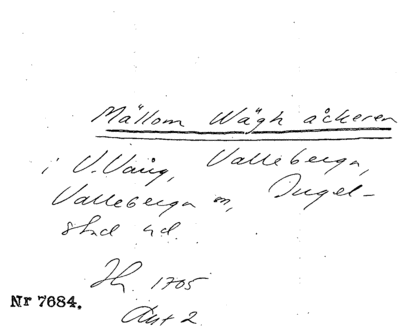 Mällom Wägh åckeren
i V. Vång, Valleberga,
Valleberga sn, Ingel-
stad hd.
Jb. 1705
Ant 2
Nr 7684.